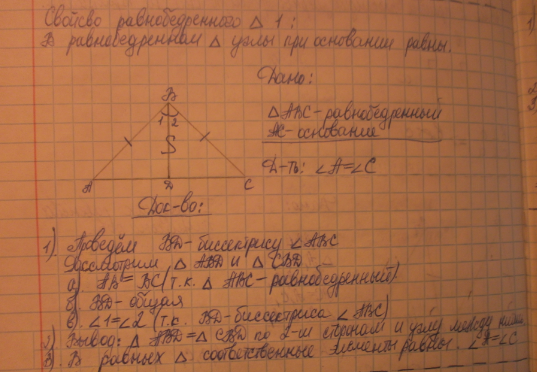 Свойсво равнобедренного △ 1:
В равнобедренном △ углы при основании равны.
Дано:
△ABC - равнобедренный
AC - основание
Д-ть: ∠A=∠C
B
1 2
A D C
Док-во:
1) Проведём BD - биссектрису ∠ABC
Рассмотрим, △ ABD и △ CBD
а) AB = BC (т.к. △ ABC - равнобедренный)
б) BD - общая
в) ∠1=∠2 (т.к. BD - биссектриса ∠ABC)
2) Вывод: △ ABD = △ CBD по 2-м сторонам и углу между ними
3) В равных △ соответственные элементы равны. ∠A=∠C